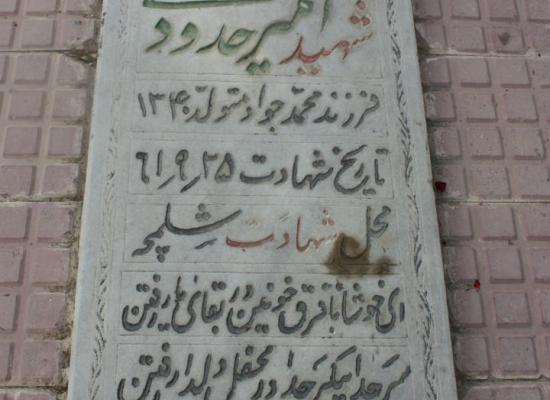 شهید امیر حدود
فرزند محمد جواد متولد ۱۳۴۰
تاریخ شهادت ۶۱٫۹٫۲۵
محل شهادت شلمچه
ای خوشا با فرق خونین در لقای یار رفتن
سر جدا پیکر جدا در محفل دلدار رفتن